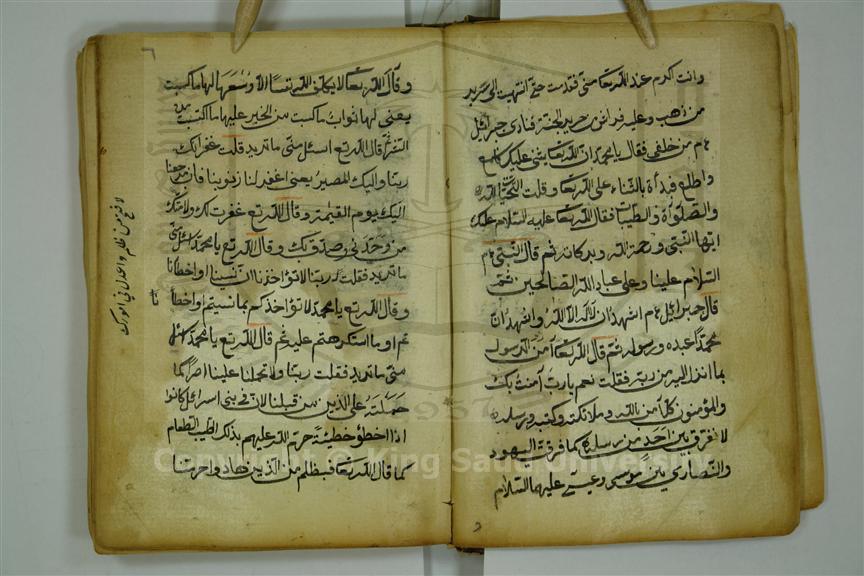 وانت اكرم عند الله تعا منّى فقدمت حتّى انتهيت الى سرير
من ذهب وعليه فراش من حرير الجنّة فنادى جبرائيل
ع م من خلفى فقال يا محمد ان الله تعا يثنى عليك فاسمع
واطلع فبدأة بالثناء على الله تعا وقلت التحيّة لله
والصلوأة والطيبات فقال الله تعا عليه السلام عليك
ايّها النّبي ورحمة الله وبركاته نعم قال النّبي ع م
السّلام علينا وعلى عباد الله الصالحين ثم
قال جبرائيل ع م اشهد ان لا اله الا الله واشهد ان
محمّدا عبده ورسوله ثم قال الله تعا آمن الرسول
بما انزل اليه من ربّه فقلت نعم يا ربّ آمنت بك
والمؤمنون كلّ آمن بالله وملائكته وكتبه ورسله
لا نفرق بين احد من رسله كما فرقت اليهود
والنّصارى بين موسى وعيسى عليهما السّلام
وقال الله تعا لا يكلف الله نفسا الا وسعها لها ما كسبت
يعنى لها ثواب ما كسبت من الخير عليها ما اكتسبت من
الشر قال الله تع اسئل منّى ما تريد قلت غفرانك
ربّنا واليك المصير يعنى اغفر لنا ذنوبنا فان مرجعنا
اليك يوم القيمة وقال الله تع غفرت لك ولامّتك
من وحّدنى وصدّق بك وقال الله تع يا محمد سئل منّى
ما تريد فقلت ربّنا لا تؤاخذنا ان نسينا او اخطأنا
وقال الله تع يا محمد لا تؤاخذكم بما نسيتم او اخطأ
تم او بما استكرهتم عليه نعم قال الله تع يا محمد سئل
منّى ما تريد فقلت ربّنا ولا تحمل علينا اصرا كما
حملته على الذين من قبلنا لان بنى اسرائل كانوا
اذا اخطؤ خطيئة حرم الله عليهم بذلك الطيب الطعام
كما قال الله تعا فبظلم من الذين هادوا حرّمنا
Copyright © King Saud University
1957